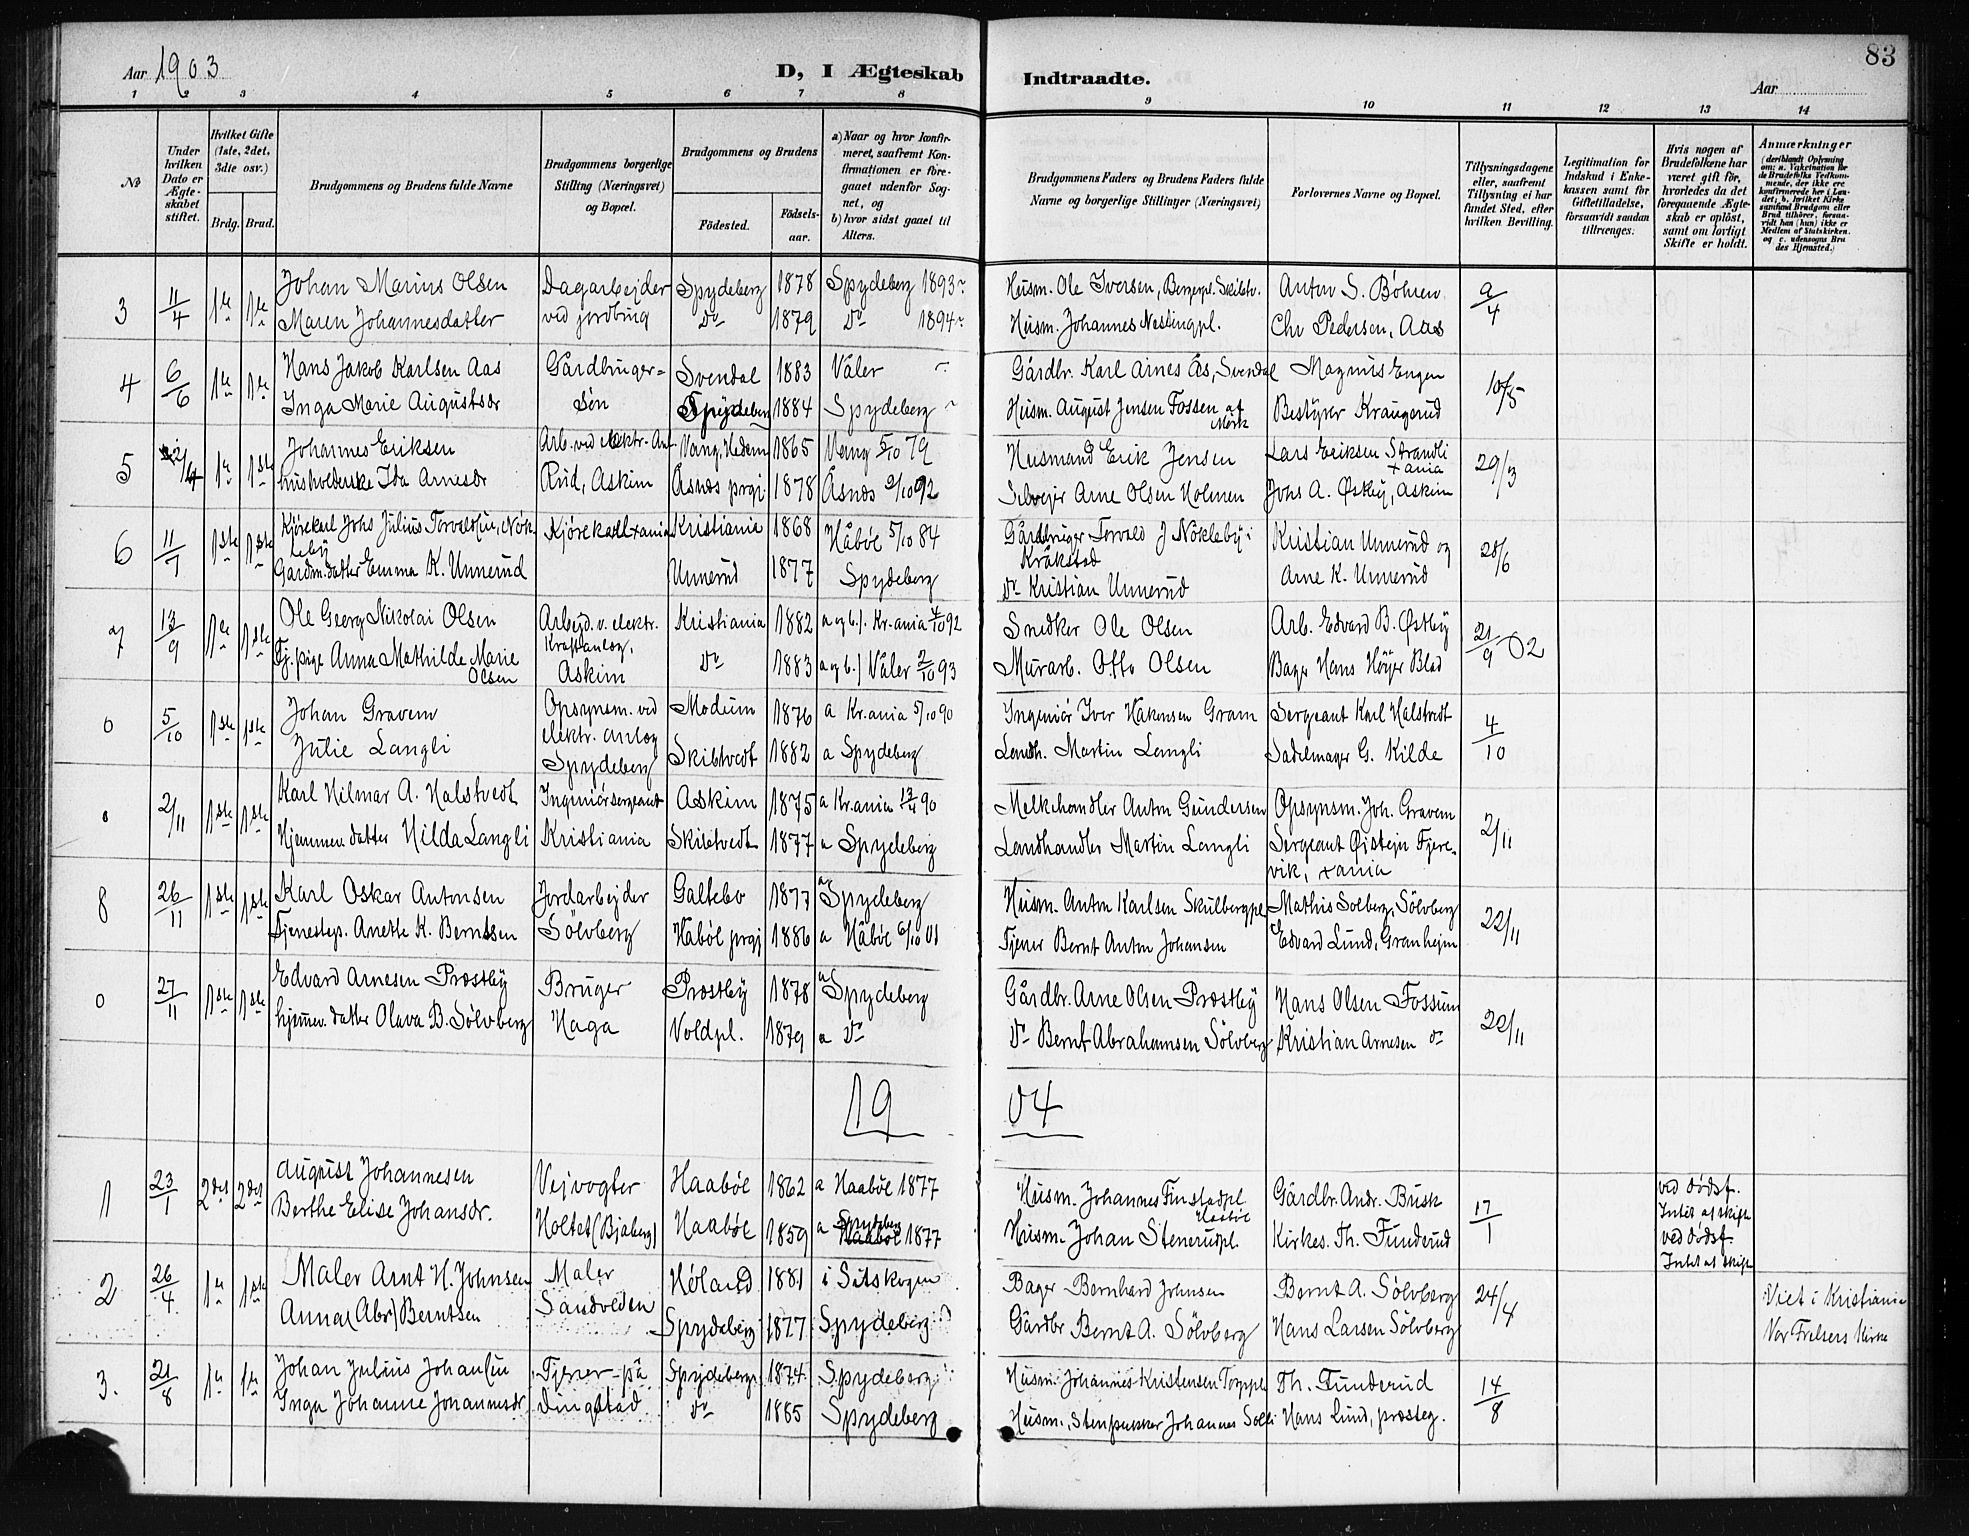 83
Aar 1903
D, I Ægteskab Indtraadte.
Aar
1 2 3 4 5 6 7 8 9 10 11 12 13 14
No
Under hvilken Dato er Ægteskabet stiftet.
Hvilket Gifte (1ste, 2det, 3die osv.)
Brdg. Brud.
Brudgommens og Brudens fulde Navne
Brudgommens borgerlige Stilling (Næringsvei) og Bopæl.
Brudgommens og Brudens
Fødested.
Fødselsaar.
a) Naar og hvor konfirmeret, saafremt Konfirmationen er foregaaet udenfor Sognet, og
b) hvor sidst gaaet til Alters.
Brudgommens Faders og Brudens Faders fulde Navne og borgerlige Stillinger (Næringsvei)
Forlovernes Navne og Bopæl.
Tillysningsdagene eller, saafremt Tillysning ei har fundet Sted, efter hvilken Bevilling.
Legitimation for Indskud i Enkekassen samt for Giftetilladelse, forsaavidt saadan tiltrænges.
Hvis nogen af Brudefolkene har været gift før, hvorledes da det foregaaende Ægteskab er opløst, samt om lovligt Skifte er holdt.
Anmærkninger
3 4/4 1te 1te Johan Marius Olsen Dagarbejder Spydeberg 1878 Spydeberg 1893 Husm. Ole Iversen, Bergspl. Skibtv. Anton S. Bøhren 9/4
Maren Johannesdatter ved jordbrug do 1879 do 1894 Husm. Johannes Næstingpl. Chr Pedersen, Aas
4 6/6 1te 1te Hans Jakob Karlsen Aas Gårdbruger= Svendal 1883 Våler Gårdbr. Karl Arnes Ås, Svendal Magnus Engen 10/5
Inga Marie Augustsdr søn Spydeberg 1884 Spydeberg Husm. August Jensen Fossen af Mørk Bestyrer Kraugerud
5 2/4 1te 1ste Johannes Eriksen Arb. ved elektr. An Vang, Hedem 1865 Vang 5/10 79 Husmand Erik Jensen Lars Eriksen Strandli xania 29/3
husholderske Ida Arnesdr Rud, Askim Åsnæs prgj 1878 Åsnæs 2/10 92 Selvejr Arne Olsen Holmen Johs A. Østby, Askim
6 11/7 1ste 1ste Kjørekarl Johs Julius Torvaldsen, Nøkleby Kjørekarl xania Kristiania 1868 Håbøl 5/10 84 Gårdbruger Torvald J Nøkleby i Kråkstad Kristian Unnerud og 28/6
Gårdm. datter Emma K. Unnerud Unnerud 1877 Spydeberg do Kristian Unnerud Arne K. Unnerud
7 13/9 1te 1ste Ole Georg Nikolai Olsen Arbejd. v. elektr. Kristiania 1882 a og b.). Kr.ania 4/10 92 Snedker Ole Olsen Arb. Edvard B. Østby 21/9 02
Tj. pige Anna Mathilde Marie Olsen Kraftanlæg, Askim do 1883 a og b.) Våler 2/10 93 Murarb. Otto Olsen Bager Hans Høyer Blad
0 5/10 1ste 1ste Johan Gravem Opsynsm. ved Modum 1876 a Kr.ania 5/10 90 Ingeniør Iver Håkensen Gram Sergeant Karl Halstvedt 4/10
Julie Langli elektr. anlæg Spydeberg Skibtvedt 1882 a Spydeberg Landh. Martin Langli Sadelmager G. Kilde
2/11 1ste 1ste Karl Hilmar A. Halstvedt Ingeniørsergeant Askim 1875 a Kr.ania 13/4 90 Melkehandler Anton Gundersen Opsynsm. Joh. Gravem 2/11
Hjemmev. datter Hilda Langli Kristiania Skibtvedt 1877 a Spydeberg Landhandler Martin Langli Sergeant Øistejn Fjerevik, xania
8 26/11 1ste 1ste Karl Oskar Antonsen Jordarbejder Galtebo 1877 a Spydeberg Husm. Anton Karlsen Skulbergpl Mathis Solberg, Sölvberg 22/11
Tjenestep. Anette K. Berntsen Sölvberg Håbøl prgj 1886 a Håbøl 6/10 01 Tjener Bernt Anton Johansen Edvard Lund, Granhejm
0 27/11 1ste 1ste Edvard Arnesen Præstby Bruger Præstby 1878 a Spydeberg Gårdbr. Arne Olsen Præstby Hans Olsen Fossum 22/11
hjemmev. datter Olava B. Sölvberg Haga Voldpl. 1879 a do do Bernt Abrahamsen Sölvberg Kristian Arnesen do
19 04
1 23/1 2det 2det August Johannesen Vejvogter Haabøl 1862 a Haabøl 1877 Husm. Johannes Finstadpl Haabøl Gårdbr. Andr. Busk 17/1 ved dødsf. Intet at skifte
Berthe Elise Johansdr. Holtet (Bjaberg) Haabøl 1859 a Spydeberg 1877 Husm. Johan Stenerudpl. Kirkes. Th. Funderud ved dødsf. Intet at skifte
2 26/4 1te 1ste Maler Arnt H. Johnsen Maler Høland 1881 i Setskogen Bager Bernhard Johnsen Bernt A. Sölvberg 24/4 Viet i Kristiania
Anna (Abr) Berntsen Sandveden Spydeberg 1877 Spydeberg Gårdbr Bernt A. Sölvberg Hans Larsen Sölvberg Vor Frelsers Kirke
3. 21/8 1te 1te Johan Julius Johansen Tjener på Spydeberg 1874 Spydeberg Husm. Johannes Kristensen Torppl Th. Funderud 14/8
Inga Johanne Johannesdr Dingstad do 1885 Spydeberg Husm. Stenpukker Johannes Solli Hans Lund, præsteg.